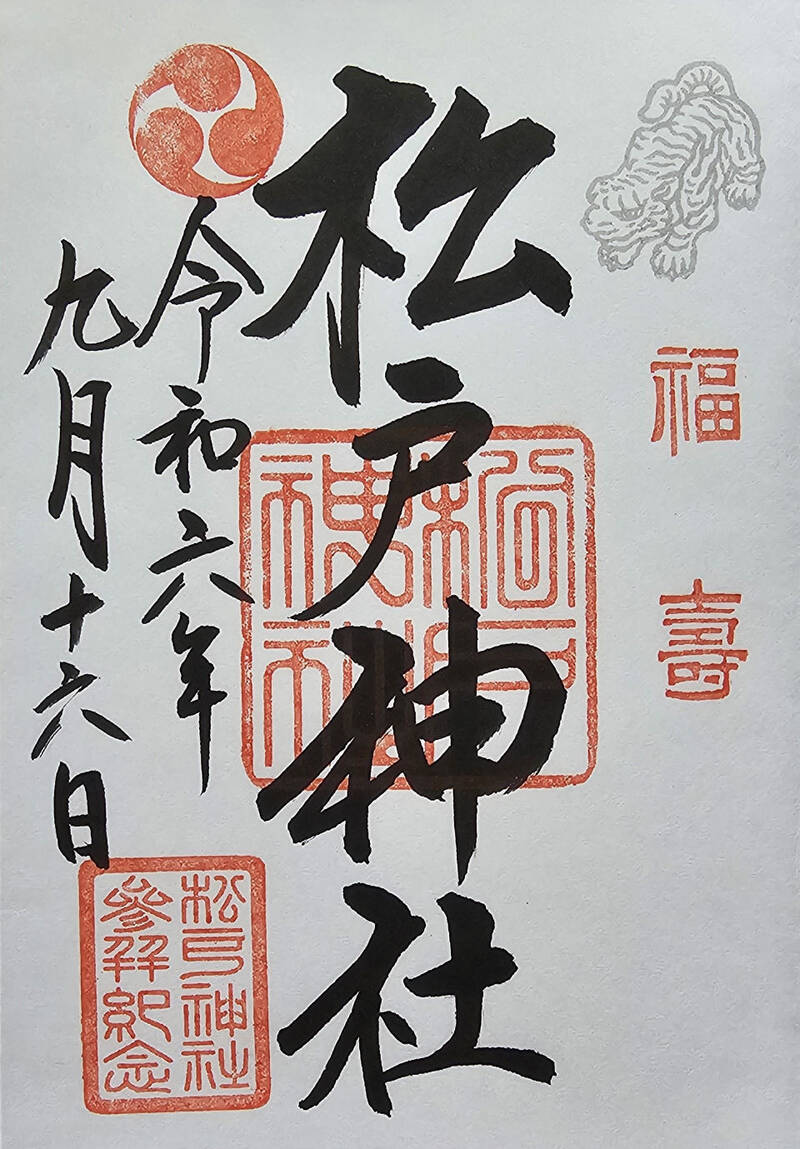 福壽
松戸神社
松戸神社
令和六年
九月十六日
松戸神社
参拝紀念